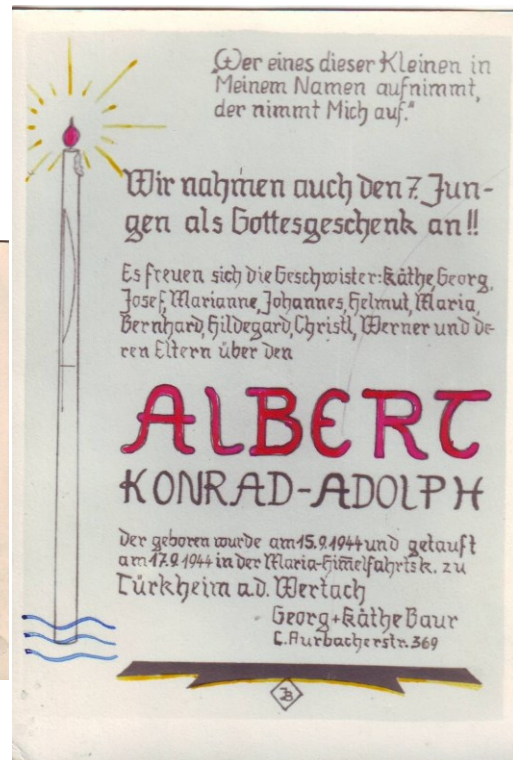 „Wer eines dieser Kleinen in
Meinem Namen aufnimmt,
der nimmt Mich auf."
Wir nahmen auch den 7. Jun-
gen als Gottesgeschenk an!!
Es freuen sich die Geschwister: Käthe, Georg,
Josef, Marianne, Johannes, Helmut, Maria,
Bernhard, Hildegard, Christl, Werner und de-
ren Eltern über den
ALBERT
KONRAD-ADOLPH
der geboren wurde am 15.9.1944 und getauft
am 17.9.1944 in der Maria-Himelfahrtsk. zu
Türkheim a.d. Wertach
Georg + Käthe Baur
L. Aurbacherstr. 369
JB